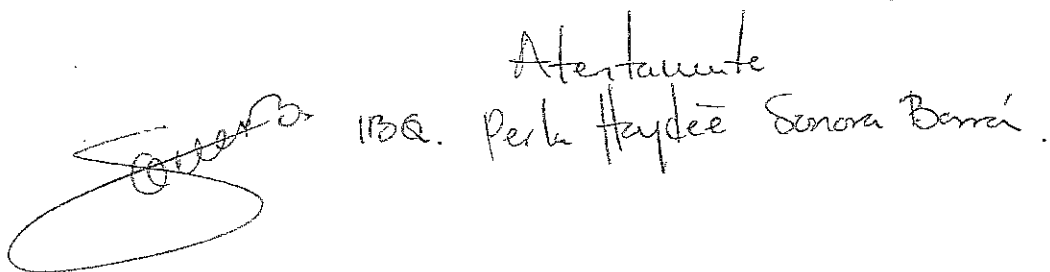 Atentamente
IBQ. Perla Haydeè Sonora Barrá.